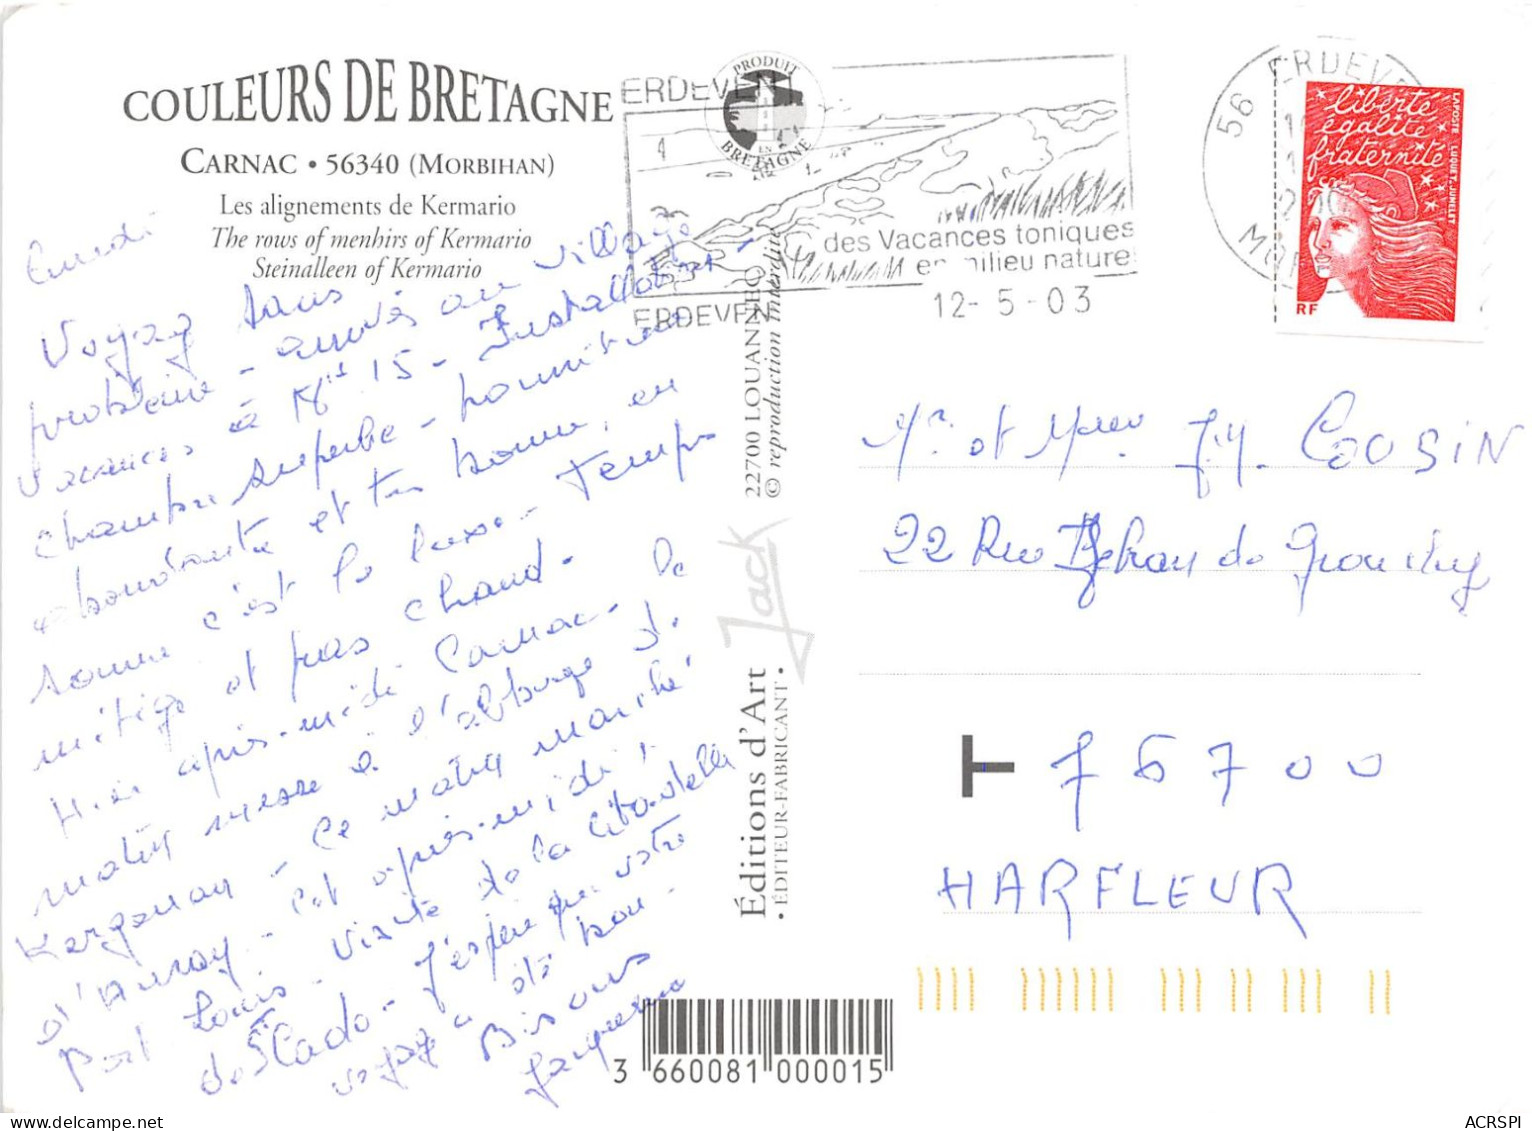 COULEURS DE BRETAGNE
CARNAC • 56340 (MORBIHAN)
Les alignements de Kermario
The rows of menhirs of Kermario
Steinalleen of Kermario
PRODUIT EN BRETAGNE
ERDEVEN
des Vacances toniques
en milieu nature
ERDEVEN
12-5-03
56 ERDEVEN
MOR
liberté
égalité
fraternité
LAPOSTE LUQUET, JUMELET
RF
Lundi
Voyage sans
problème - arrivés au village
vacances à 15 - Installation
chambre superbe - nourriture
abondante et très bonne, en
somme c'est le luxe - Temps
mitigé et pas chaud. 
Hier après-midi Carnac - le
matin messe à l'abbaye de
Kergonan - Ce matin marché
d'Auray - et après-midi
Port Louis - visite de la citadelle
de St Cado - J'espère que votre
voyage a été bon -
Bisous
Jacqueline
22700 LOUANNEC
© reproduction interdite
Jack
Éditions d'Art
• ÉDITEUR-FABRICANT •
Mr et Mme J.M. COUSIN
22 Rue Jehan de Grouchy
76700
HARFLEUR
3 660081 000015
ACRSPI